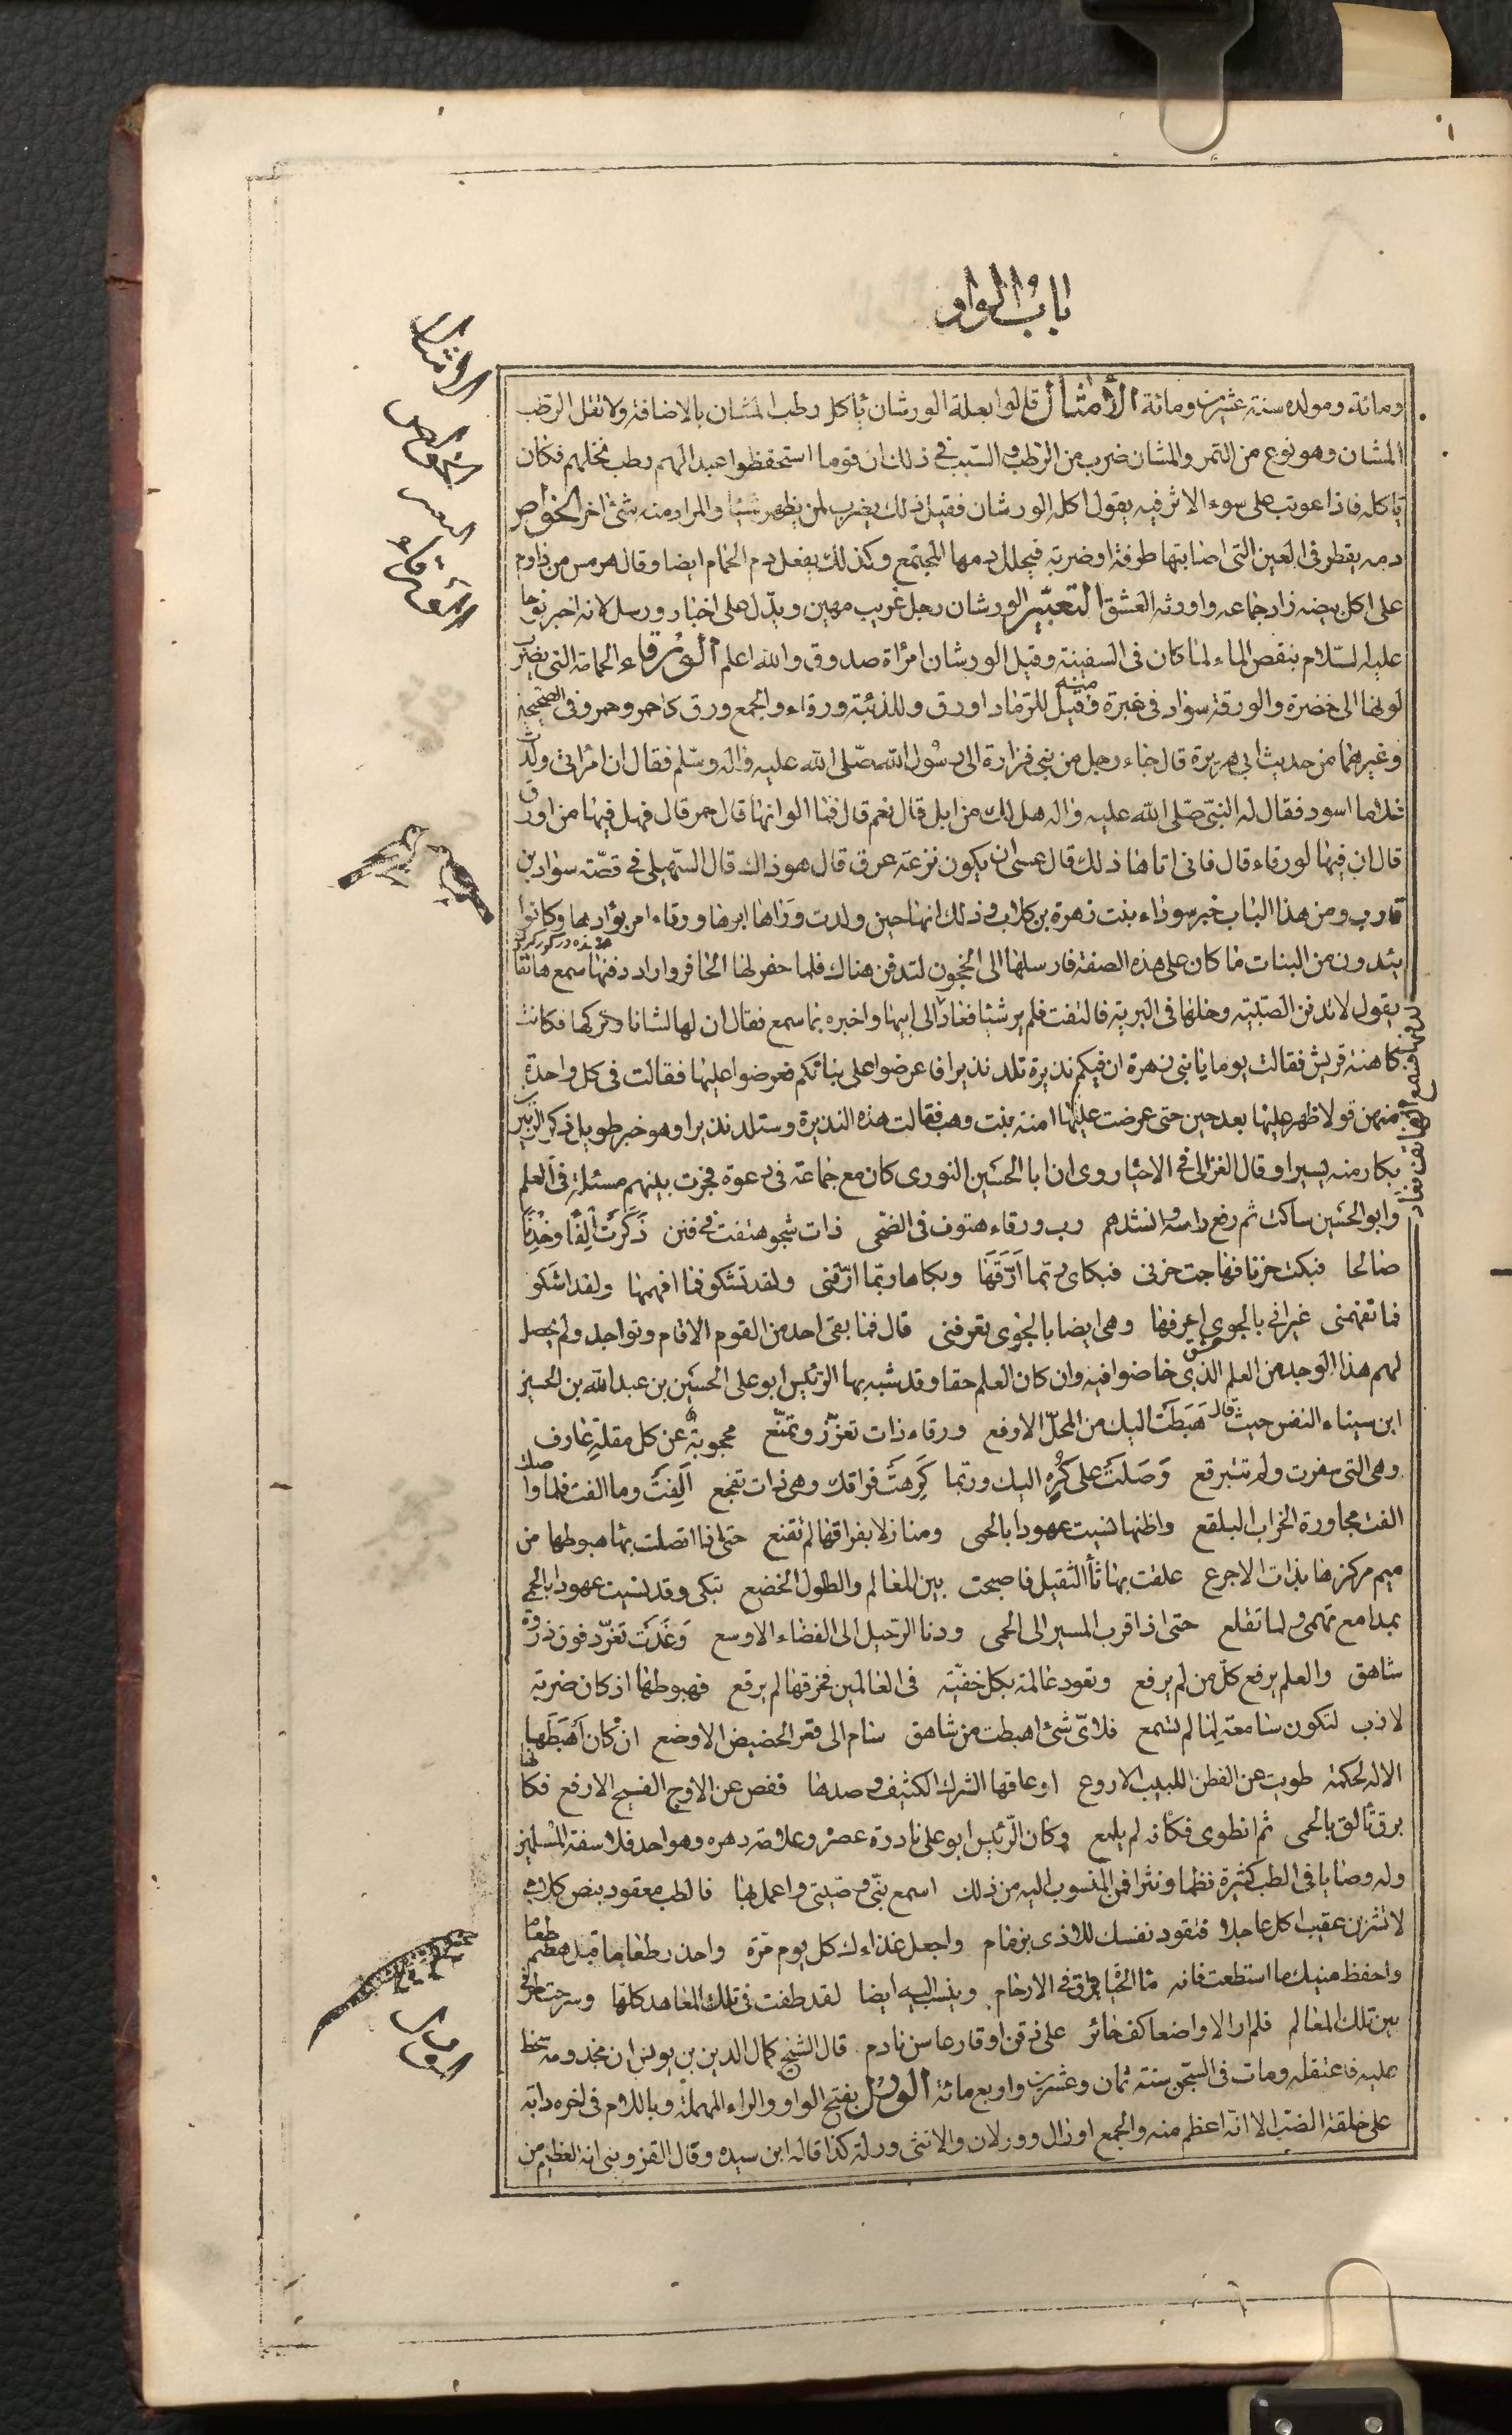 باب الواو
ومائة ومولده سنة عشرين ومائة الأمثال قالوا بعلة الورشان يأكل رطب المشان بالاضافة ولا تقل الرطب
المشان وهو نوع من التمر والمشان ضرب من الرطب والسبب فى ذلك ان قوما استحفظوا عبدا لهم رطب نخلهم فكان
ياكله فاذا عوتب على سوء الاثر فيه يقول اكله الورشان فقيل ذلك يضرب لمن يظهر شيئا والمراد منه شئ اخر الخواص
دمه يقطر فى العين التى اصابتها طرفة او ضربة فيحلل دمها المجتمع وكذلك يفعل دم الحمام ايضا وقال هرمس من داوم
على اكل بيضه زاد جماعه واورثه العشق التعبير الورشان رجل غريب مهين ويدل على اخبار ورسل لانه اخبر نوحا
عليه السلام بنقص الماء لما كان فى السفينة وقيل الورشان امرأة صدوق والله اعلم الورقاء الحمامة التى يضرب
لونها الى خضرة والورقة سواد فى غبرة ومنه قيل للرماد اورق وللذئبة ورقاء والجمع ورق كاحمر وحمر وفى الصحيحين
وغيرهما من حديث ابى هريرة قال جاء رجل من بنى فزارة الى رسول الله صلى الله عليه واله وسلم فقال ان امرأتى ولدت
غلاما اسود فقال له النبى صلى الله عليه واله هل لك من ابل قال نعم قال فما الوانها قال حمر قال فهل فيها من اورق
قال ان فيها لورقاء قال فانى اتاها ذلك قال عسى ان يكون نزعه عرق قال هو ذاك قال السهيلى فى قصة سواد بن
قارب ومن هذا الباب خبر سوداء بنت زهرة بن كلاب وذلك انها حين ولدت وراها ابوها ورقاء امر بوادها وكانوا
يئدون من البنات ما كان على هذه الصفة فارسلها الى الحجون لتدفن هناك فلما حفر لها الحافر واراد دفنها سمع هاتفا
يقول لا تدفن الصبية وخلها فى البرية فالتفت فلم ير شيئا فعاد الى ابيها واخبره بما سمع فقال ان لها لشانا وتركها فكانت
كاهنة قريش فقالت يوما يا بنى زهرة ان فيكم نذيرة تلد نذيرا فاعرضوا على بناتكم فعرضوا عليها فقالت فى كل واحدة
منهن قولا ظهر عليها بعد حين حتى عرضت عليها امنة بنت وهب فقالت هذه النذيرة وستلد نذيرا وهو خبر طويل ذكر الزبير بن
بكار منه يسيرا وقال الغزالى فى الاحياء روى ان ابا الحسين النورى كان مع جماعة فى دعوة فجرت بينهم مسئلة فى العلم
وابو الحسين ساكت ثم رفع راسه وانشدهم رب ورقاء هتوف فى الضحى ذات شجو هتفت فى فنن ذكرت الفا وخدنا
صالحا فبكت حزنا فهاجت حزنى فبكائى ربما ارقها وبكاها ربما ارقنى ولقد تشكو فما افهمها ولقد اشكو
فما تفهمنى غير انى بالجوى اعرفها وهى ايضا بالجوى تعرفنى قال فما بقى احد من القوم الا قام وتواجد ولم يحصل
لهم هذا الوجد من العلم الذى خاضوا فيه وان كان العلم حقا وقد شبه بها الرئيس ابو على الحسين بن عبد الله بن الحسين
ابن سيناء النفس حيث قال هبطت اليك من المحل الارفع ورقاء ذات تعزز وتمنع محجوبة عن كل مقلة عارف
وهى التى سفرت ولم تتبرقع وصلت على كره اليك وربما كرهت فراقك وهى ذات تفجع الفت وما الفت فلما واصلت
الفت مجاورة الخراب البلقع واظنها نسيت عهودا بالحمى ومنازلا بفراقها لم تقنع حتى اذا اتصلت بهاء هبوطها من
ميم مركزها بذات الاجرع علقت بها ثأ الثقيل فاصبحت بين المعالم والطلول الخضع تبكى وقد نسيت عهودا بالحمى
بمدامع تهمى ولما تقلع حتى اذا قرب المسير الى الحمى ودنا الرحيل الى الفضاء الاوسع وغدت تغرد فوق ذروة
شاهق والعلم يرفع كل من لم يرفع وتعود عالمة بكل خفية فى العالمين فخرقها لم يرقع فهبوطها اذ كان ضربة
لازب لتكون سامعة لما لم تسمع فلاى شئ اهبطت من شاهق سام الى قعر الحضيض الاوضع ان كان اهبطها
الاله لحكمة طويت عن الفطن اللبيب الاروع او عاقها الشرك الكثيف وصدها قفص عن الاوج الفسيح الارفع فكانها
برق تالق بالحمى ثم انطوى فكانه لم يلمع وكان الرئيس ابو على نادرة عصره وعلامة دهره وهو احد فلاسفة المسلمين
وله وصايا فى الطب كثيرة نظما ونثرا فمن المنسوب اليه من ذلك اسمع بنى وصيتى واعمل بها فالطب معقود بنص كلامى
لا تشربن عقيب اكل عاجلا فتقود نفسك للاذى بزمام واجعل غذاءك كل يوم مرة واحذر طعاما قبل هضم طعام
واحفظ منيك ما استطعت فانه ماء الحياة يراق فى الارحام وينسب اليه ايضا لقد طفت فى تلك المعاهد كلها وسرحت طرفى
بين تلك المعالم فلم ار الا واضعا كف حائر على ذقن او قارعا سن نادم قال الشيخ كمال الدين بن يونس ان مخدومه سخط
عليه فاعتقله ومات فى السجن سنة ثمان وعشرين واربع مائة الورل بفتح الواو والراء المهملة وباللام فى اخره دابة
على خلقة الضب الا انه اعظم منه والجمع اورال وورلان والانثى ورلة كذا قاله ابن سيده وقال القزوينى انه العظيم من
الامثال
الخواص
التعبير
الورقاء
الورل